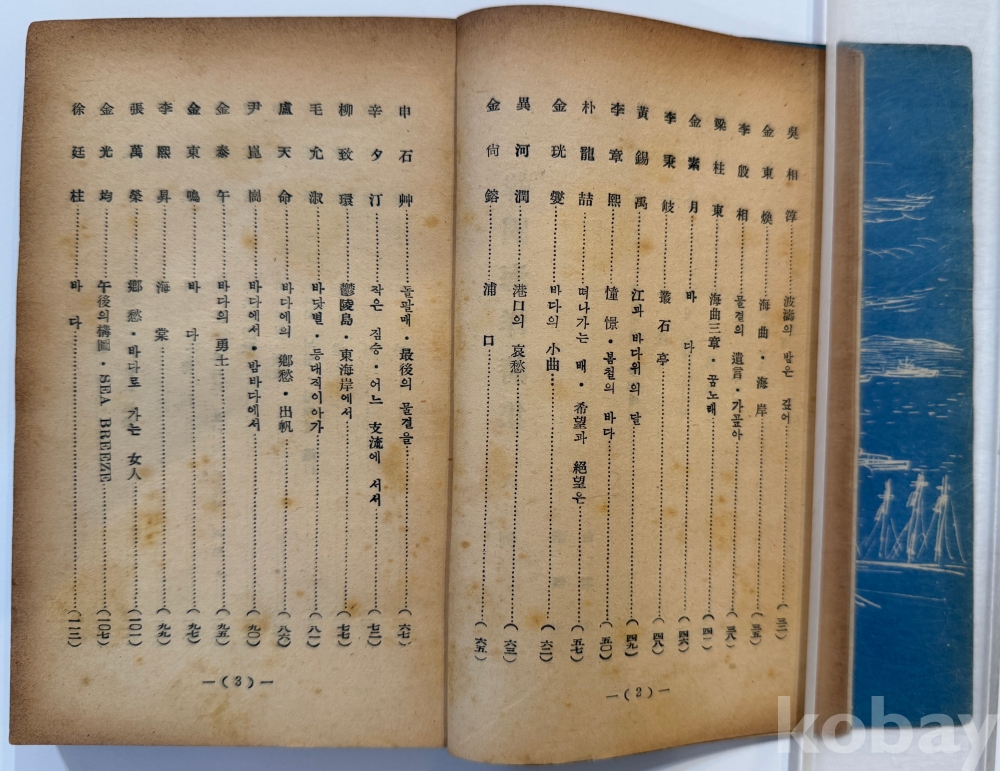 吳相淳………波濤의 밤은 깊어………(三二)
金東煥………海曲・海岸………(三五)
李殷相………물결의 遺言・가곺아………(三八)
梁柱東………海曲三章・꿈노래………(四一)
金素月………바다………(四六)
李秉岐………叢石亭………(四八)
黃錫禹………江과 바다위의 달………(四九)
李章熙………憧憬・봄철의 바다………(五〇)
朴龍詰………떠나가는 배・希望과 絕望은………(五七)
金珖燮………바다의 小曲………(六二)
異河潤………港口의 哀愁………(六三)
金尙鎔………浦口………(六五)
—(2)—
申石艸………돌팔매・最後의 물결을………(六七)
辛夕汀………작은 짐승・어느 支流에 서서………(七二)
柳致環………鬱陵島・東海岸에서………(七七)
毛允淑………바닷별・등대직이아가………(八一)
盧天命………바다에의 鄕愁・出帆………(八六)
尹崑崗………바다에서・밤바다에서………(九〇)
金泰午………바다의 勇士………(九五)
金東鳴………바다………(九七)
李熙昇………海棠………(九九)
張萬榮………鄕愁・바다로 가는 女人………(一〇一)
金光均………午後의構圖・SEA BREEZE………(一〇七)
徐廷柱………바다………(一一三)
—(3)—
kobay